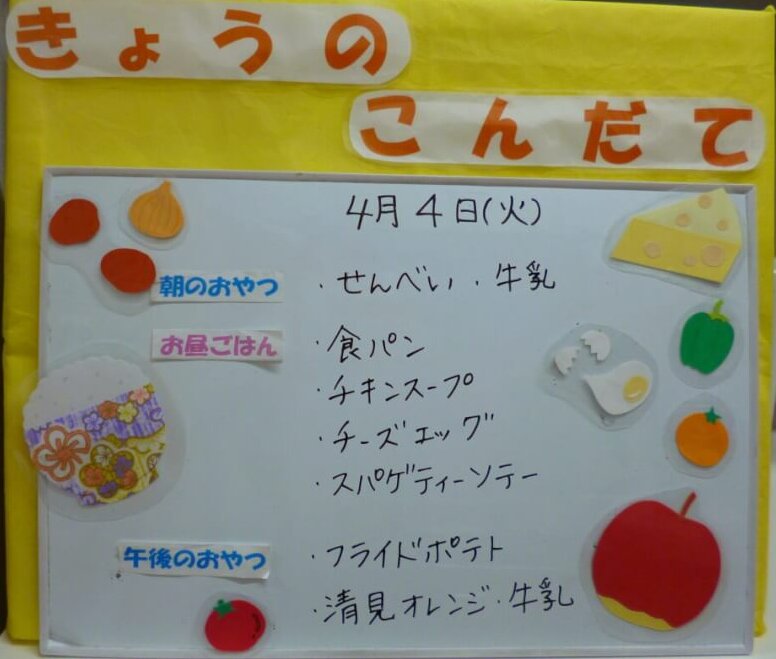 きょうの
こんだて
4月4日(火)
朝のおやつ ・せんべい・牛乳
お昼ごはん ・食パン
・チキンスープ
・チーズエッグ
・スパゲティーソテー
午後のおやつ ・フライドポテト
・清見オレンジ・牛乳